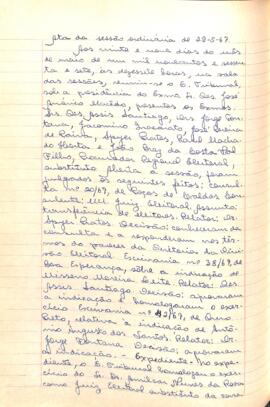 Ata da sessão ordinária de 29-5-67.
Aos vinte e nove dias do mês
de maio de um mil novecentos e sessen
ta e sete, às dezessete horas, na sala
das sessões, reuniu-se o E. Tribunal,
sob a presidência do Exmo Sr. Des. José
Américo Macêdo, presentes os Exmos.
Srs. Des. Assis Santiago, Drs. Jorge Fon
tana, Jacomino Inacarato, José Pereira
de Paiva, Ayer Batista, Raul Macha
do Horta e João Braz da Costa Val
Filho, Procurador Regional Eleitoral,
substituto. Aberta a sessão, foram
julgados os seguintes feitos: Consul
ta nº 20/67, de Poços de Caldas. Con
sulente: MM. Juiz Eleitoral. Assunto:
transferência de eleitores. Relator: Dr.
Decisão: conheceram da
consulta e a responderam nos têr
mos do parecer da Diretoria da Divi
são Eleitoral. Escrivania nº 38/67, de
Boa Esperança, sôbre a indicação de
Moreira Leite. Relator: Des.
Assis Santiago. Decisão: aprovaram
a indicação e homologaram o exer
cício. Escrivania nº 42/67, de Ouro
Preto, relativa à indicação de Antô
nio Augusto dos Santos. Relator: Dr.
Jorge Fontana. Decisão: aprovaram
a indicação. - Expediente - No expe
diente, o E. Tribunal homologou o exercí
cio do Sr. Dr. Amilcar Nunes da Rosa
como Juiz Eleitoral substituto da zona